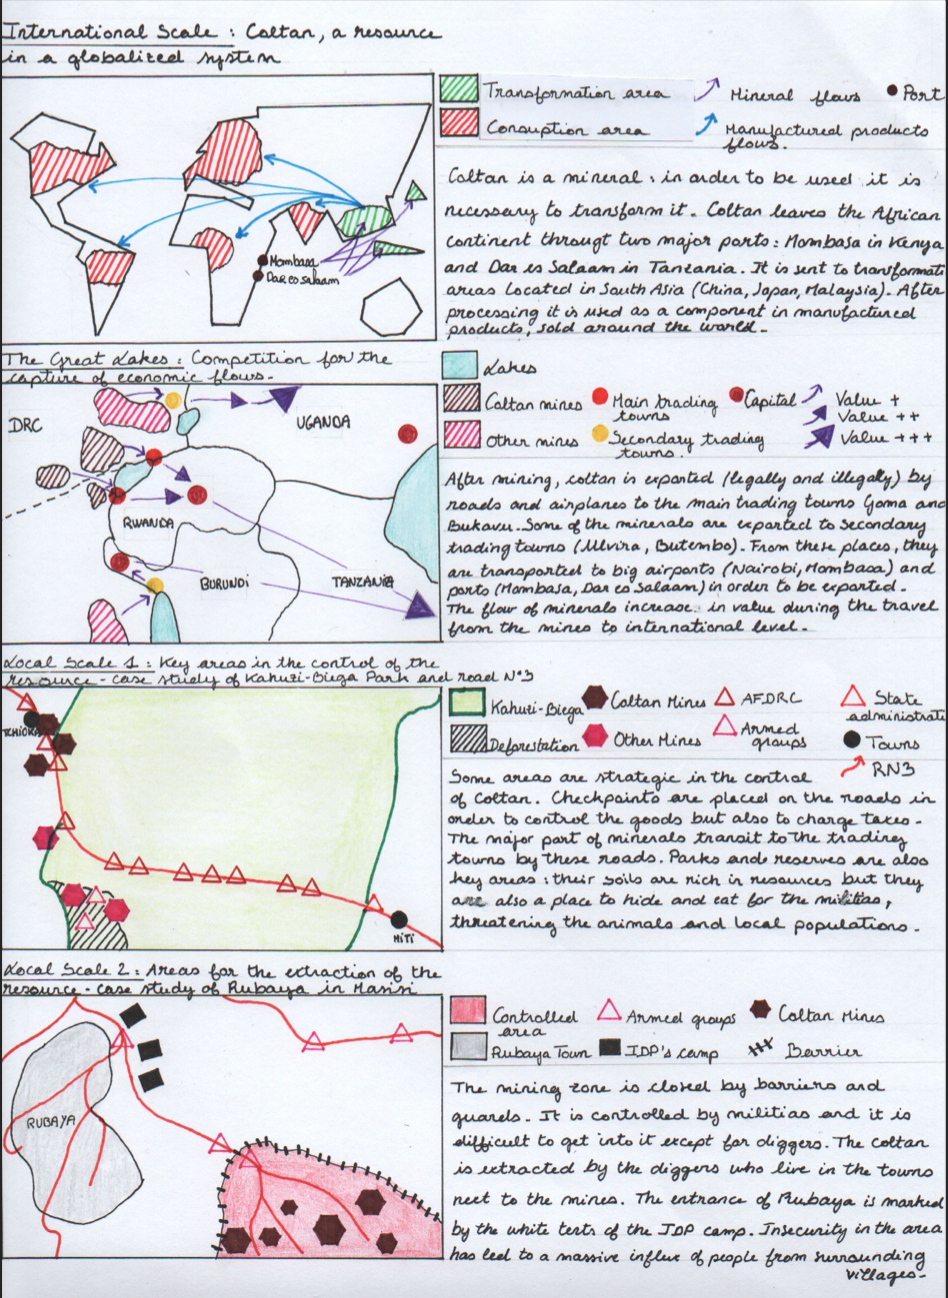 International Scale : Coltan, a resource
in a globalized system
Transformation area
Consuption area
Mineral flows
Manufactured products
flows.
Port
Mombasa
Dar es Salaam
Coltan is a mineral : in order to be used it is
necessary to transform it. Coltan leaves the African
continent througt two major ports : Mombasa in Kenya
and Dar es Salaam in Tanzania. It is sent to transformati
areas located in South Asia (China, Japan, Malaysia). After
processing it is used as a component in manufactured
products, sold around the world.
The Great Lakes : Competition for the
capture of economic flows.
DRC
UGANDA
RWANDA
BURUNDI
TANZANIA
Lakes
Coltan mines
Other mines
Main trading
towns
Secondary trading
towns.
Capital
Value +
Value ++
Value +++
After mining, coltan is exported (legally and illegally) by
roads and airplanes to the main trading towns Goma and
Bukavu. Some of the minerals are exported to secondary
trading towns (Ulvira, Butembo). From these places, they
are transported to big airports (Nairobi, Mombasa) and
ports (Mombasa, Dar es Salaam) in order to be exported.
The flow of minerals increase in value during the travel
from the mines to international level.
Local Scale 1 : Key areas in the control of the
resource - case study of Kahuzi-Biega Park and road N°3
MITI
Kahuzi-Biega
Deforestation
Coltan Mines
Other Mines
AFDRC
Armed
groups
State
administrati
Towns
RN3
Some areas are strategic in the control
of Coltan. Checkpoints are placed on the roads in
order to control the goods but also to charge taxes.
The major part of minerals transit to the trading
towns by these roads. Parks and reserves are also
key areas : their soils are rich in resources but they
are also a place to hide and eat for the militias,
threatening the animals and local populations.
Local Scale 2 : Areas for the extraction of the
resource - case study of Rubaya in Masisi
RUBAYA
Controlled
area
Rubaya Town
Armed groups
IDP's camp
Coltan Mines
Barrier
The mining zone is closed by barriers and
guards. It is controlled by militias and it is
difficult to get into it except for diggers. The coltan
is extracted by the diggers who live in the towns
next to the mines. The entrance of Rubaya is marked
by the white tents of the IDP camp. Insecurity in the area
has led to a massive influx of people from surrounding
villages.